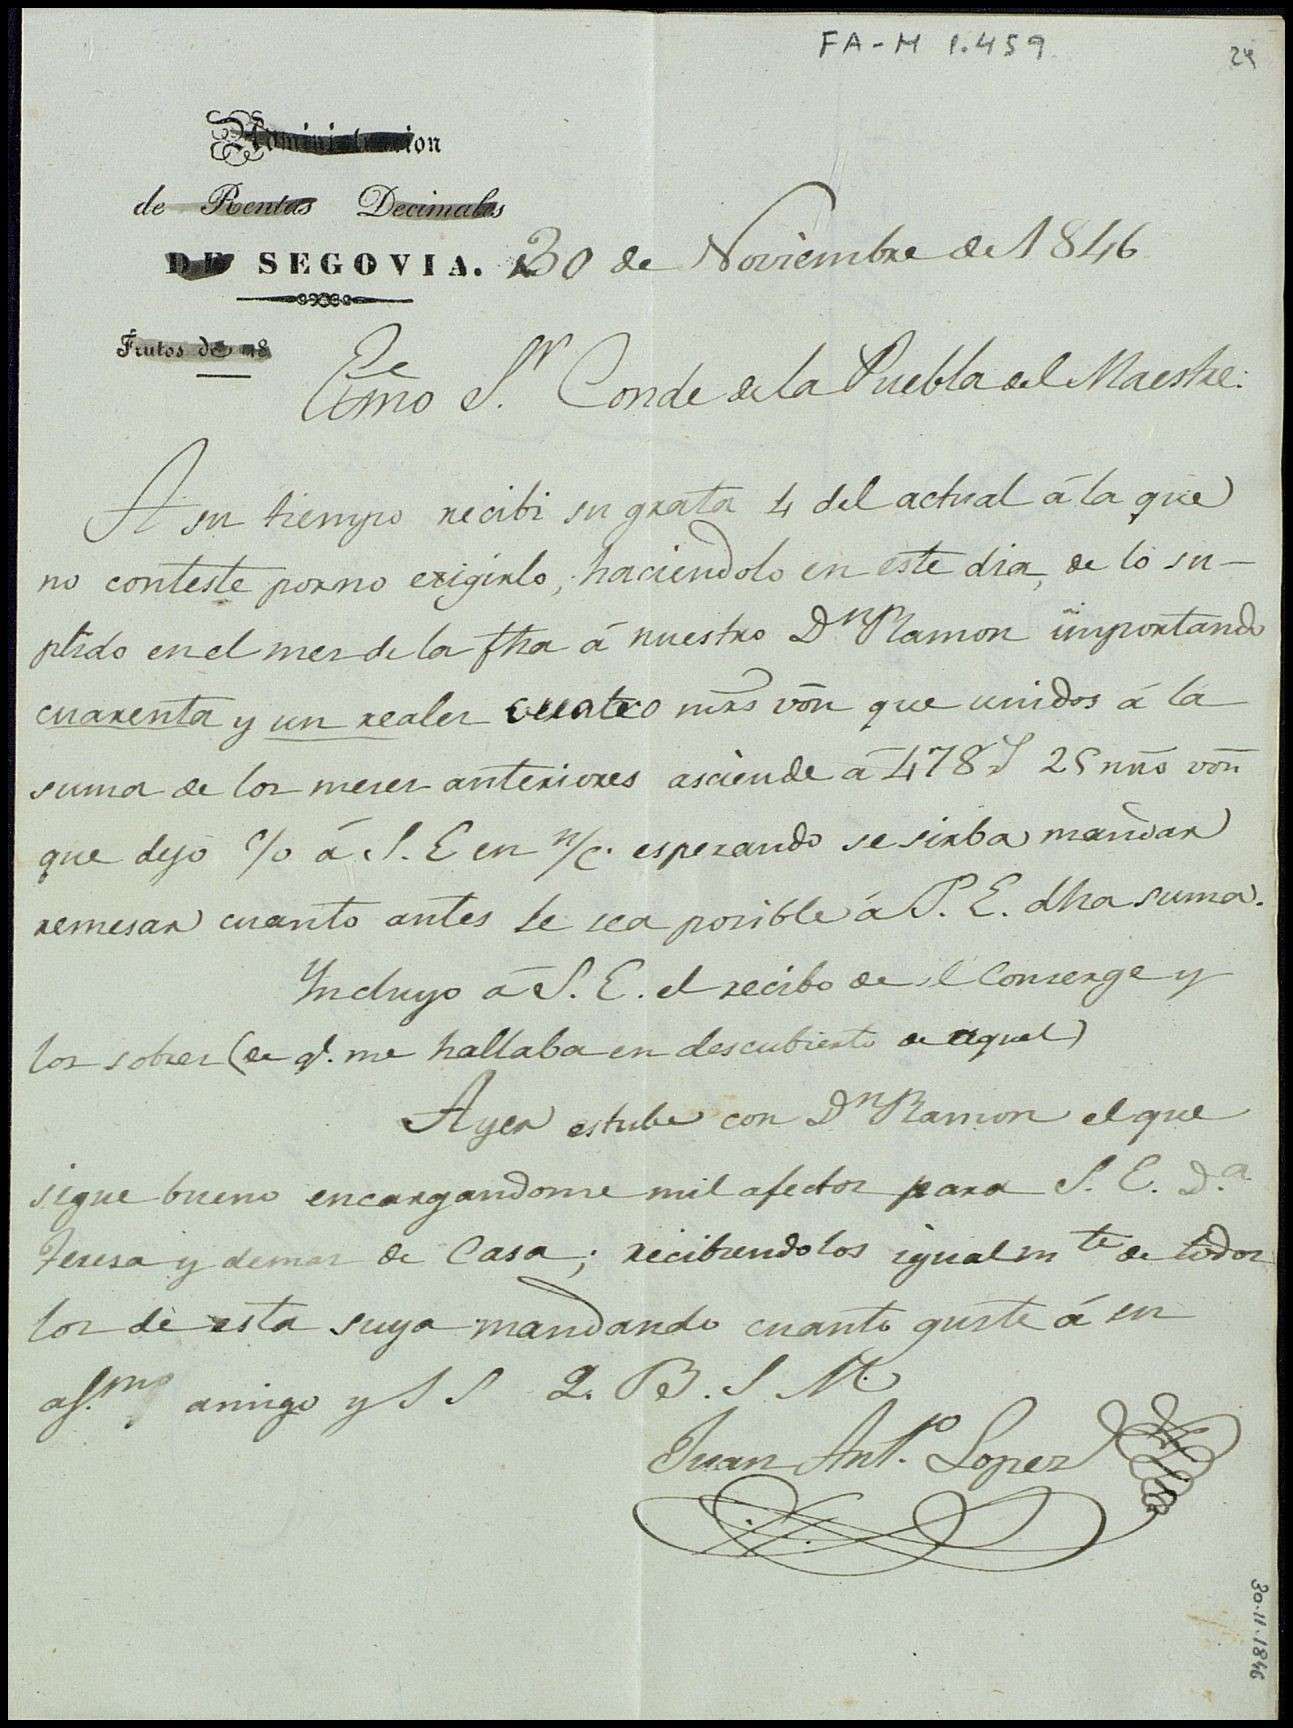 FA-M 1.459
24
Administracion
de Rentas Decimales
DE SEGOVIA. 30 de Noviembre de 1846
Frutos de 18
Exmo Sr. Conde de la Puebla del Maestre:
A su tiempo recibi su grata 4 del actual á la que
no conteste por no exigirlo, haciendolo en este dia, de lo su-
plido en el mes de la fha á nuestro Dn Ramon importando
cuarenta y un reales cuatro mrs von que unidos á la
suma de los meses anteriores asciende á 478 25 mrs von
que dejo c/o á S. E en n/c. esperando se sirba mandar
remesar cuanto antes le sea posible á P. E. dha suma.
Yncluyo á S. E. el recibo de el Conserge y
los sobres (de q. me hallaba en descubierto de aquel)
Ayer estube con Dn Ramon el que
sigue bueno encargandome mil afectos para S. E. D.a
Teresa y demas de Casa; recibiendolos igualmte de todos
los de esta suya mandando cuanto guste á su
af.mo amigo y S S Q. B. S M.
Juan Ant.o Lopez
30-11-1846